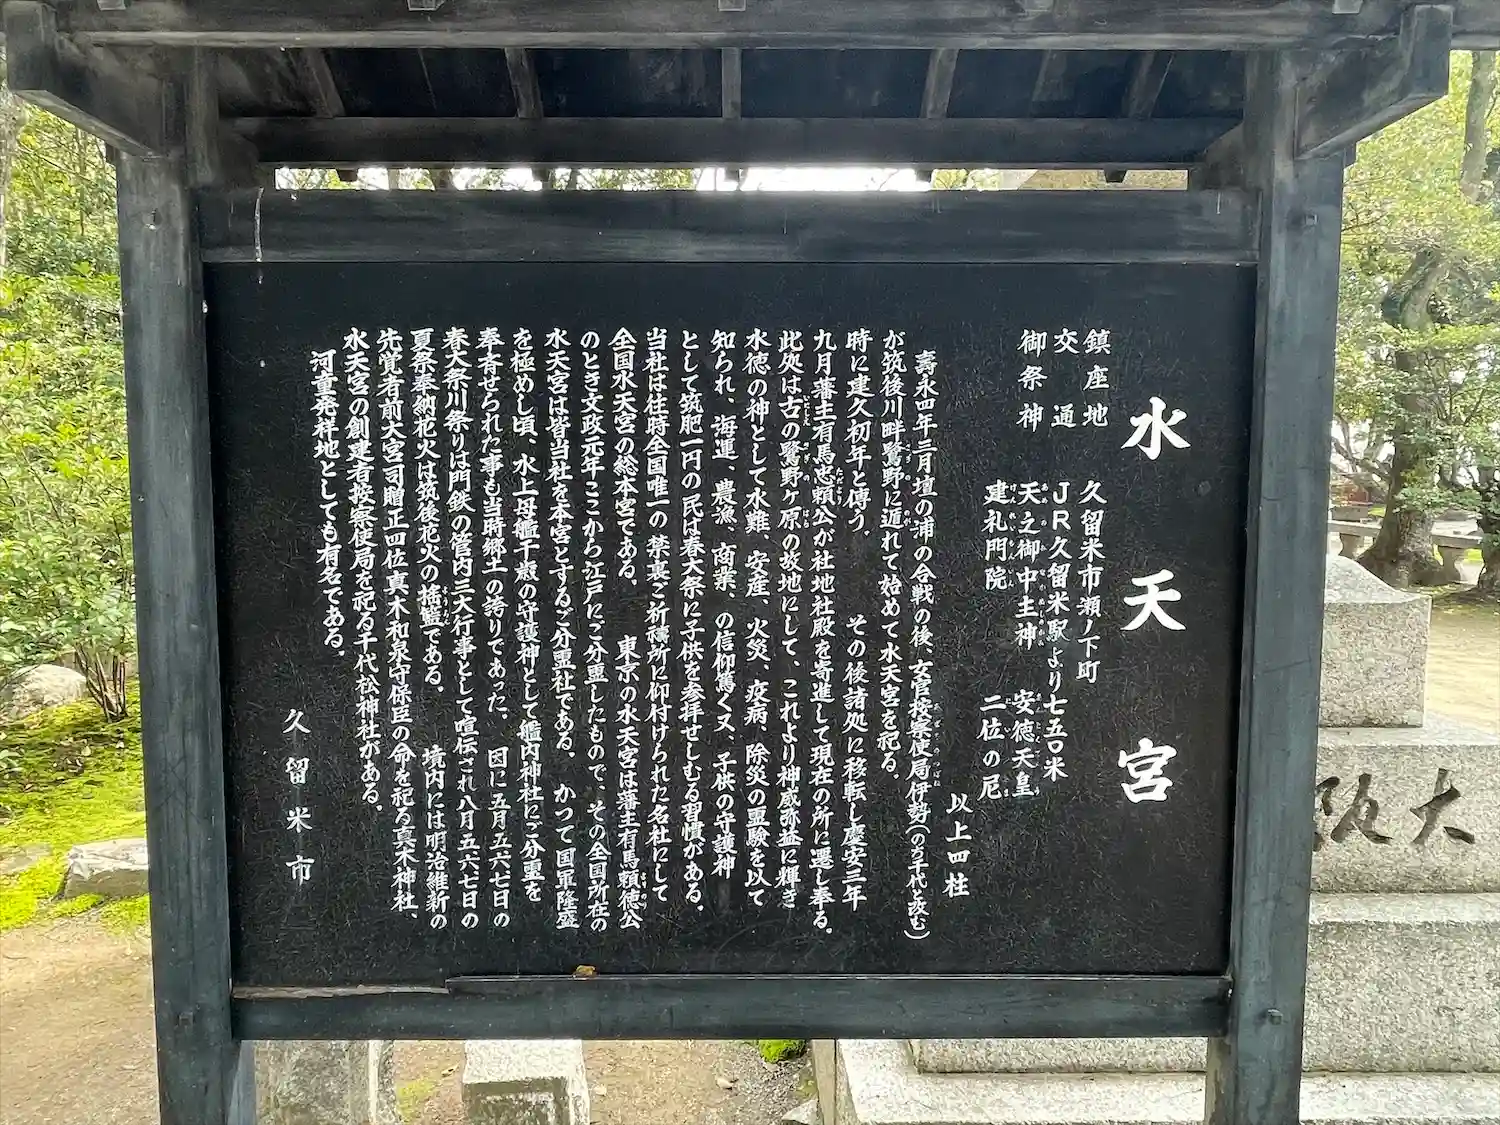 水天宮
鎮座地 久留米市瀬ノ下町
交通 JR久留米駅より七五〇米
御祭神 天之御中主神 安徳天皇
建礼門院 二位の尼
以上四柱
壽永四年三月壇の浦の合戦の後、女官按察使局伊勢(のち千代と改む)
が筑後川畔鷺野に遁れて始めて水天宮を祀る。
時に建久初年と傳う。 その後諸処に移転し慶安三年
九月藩主有馬忠頼公が社地社殿を寄進して現在の所に遷し奉る。
此処は古の鷺野ヶ原の故地にして、これより神威弥益に輝き
水徳の神として水難、安産、火災、疫病、除災の霊験を以て
知られ、海運、農漁、商業、の信仰篤く又、子供の守護神
として筑肥一円の民は春大祭に子供を参拝せしむる習慣がある。
当社は往時全国唯一の禁裏ご祈禱所に仰付けられた名社にして
全国水天宮の総本宮である。 東京の水天宮は藩主有馬頼徳公
のとき文政元年ここから江戸にご分霊したもので、その全国所在の
水天宮は皆当社を本宮とするご分霊社である。 かつて国軍隆盛
を極めし頃、水上母艦千歳の守護神として艦内神社にご分霊を
奉斉せられた事も当時郷土の誇りであった。 因に五月五六七日の
春大祭川祭りは門鉄の管内三大行事として喧伝され八月五六七日の
夏祭奉納花火は筑後花火の揺籃である。 境内には明治維新の
先覚者前大宮司贈正四位真木和泉守保臣の命を祀る真木神社、
水天宮の創建者按察使局を祀る千代松神社がある。
河童発祥地としても有名である。
久留米市
大阪